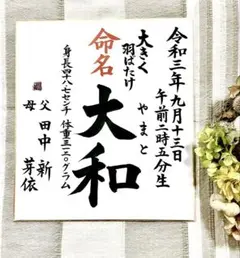 令和三年九月十三日
午前二時五分生
大きく
羽ばたけ
命名
大和
やまと
身長四八七センチ 体重三一二〇グラム
父 田中 新
母 芽依